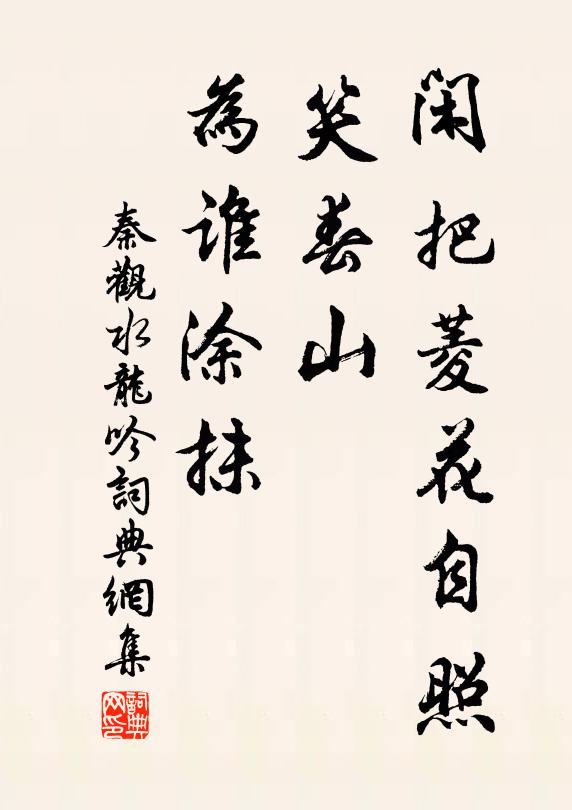 闲把菱花自照
笑春山
為谁涂抹
秦觀水龍吟詞典網集
詞典网印